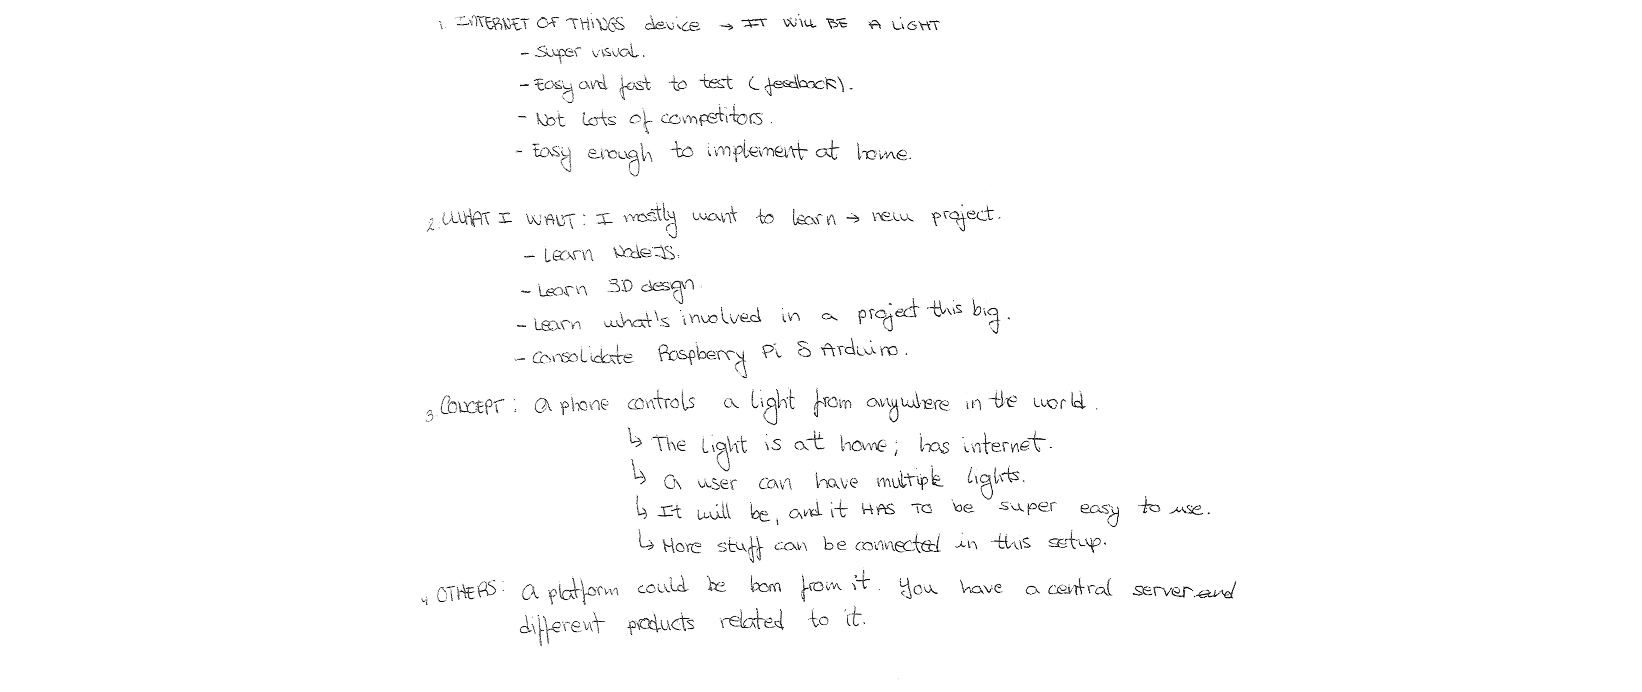 1. INTERNET OF THINGS device → IT WILL BE A LIGHT
- Super visual.
- Easy and fast to test (feedback).
- Not lots of competitors.
- Easy enough to implement at home.
2. WHAT I WANT: I mostly want to learn → new project.
- Learn NodeJS.
- Learn 3D design.
- Learn what's involved in a project this big.
- Consolidate Raspberry Pi & Arduino.
3. CONCEPT: a phone controls a light from anywhere in the world.
↳ The light is at home; has internet.
↳ A user can have multiple lights.
↳ It will be, and it HAS TO be super easy to use.
↳ More stuff can be connected in this setup.
4. OTHERS: a platform could be born from it. You have a central server and
different products related to it.